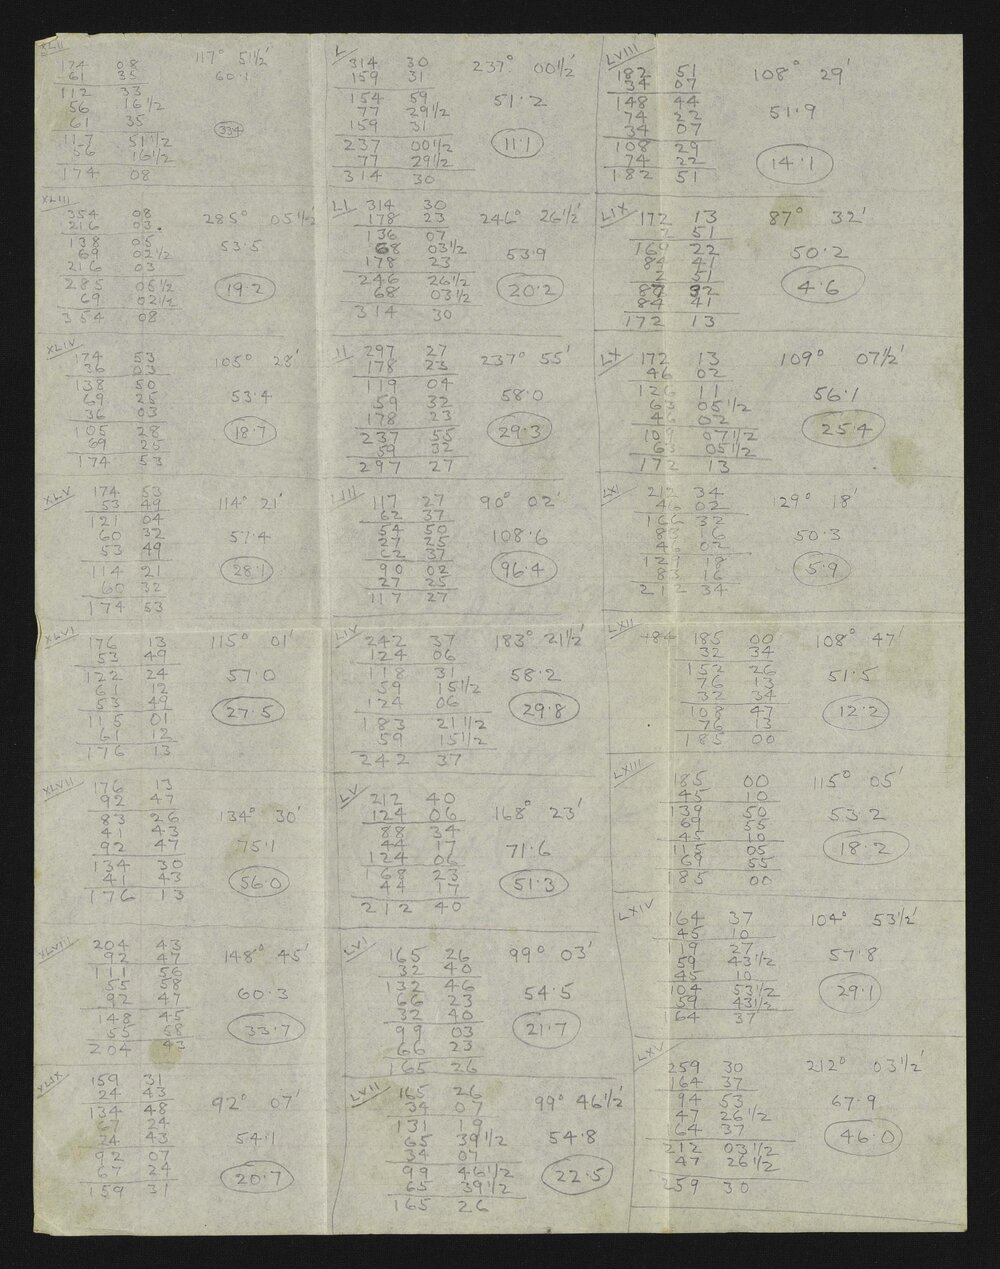 XLII
174 08 117° 51½'
61 35 60.1
112 33
56 16½
61 35 33.4
117 51½
56 16½
174 08
XLIII
354 08 285° 05½'
216 03.
138 05 53.5
69 02½
216 03
285 05½ 19.2
69 02½
354 08
XLIV
174 53 105° 28'
36 03
138 50
69 25 53.4
36 03
105 28 18.7
69 25
174 53
XLV
174 53 114° 21'
53 49
121 04
60 32 57.4
53 49
114 21 28.1
60 32
174 53
XLVI
176 13 115° 01'
53 49
122 24 57.0
61 12
53 49
115 01 27.5
61 12
176 13
XLVII
176 13
92 47
83 26 134° 30'
41 43
92 47 75.1
134 30
41 43 56.0
176 13
XLVIII
204 43
92 47 148° 45'
111 56
55 58
92 47 60.3
148 45
55 58 33.7
204 43
XLIX
159 31
24 43
134 48 92° 07'
67 24
24 43 54.1
92 07
67 24 20.7
159 31
L
314 30 237° 00½'
159 31
154 59 51.2
77 29½
159 31
237 00½ 11.1
77 29½
314 30
LI
314 30
178 23 246° 26½'
136 07
68 03½ 53.9
178 23
246 26½ 20.2
68 03½
314 30
LII
297 27 237° 55'
178 23
119 04
59 32 58.0
178 23
237 55 29.3
59 32
297 27
LIII
117 27 90° 02'
62 37
54 50 108.6
27 25
62 37
90 02 96.4
27 25
117 27
LIV
242 37 183° 21½'
124 06
118 31 58.2
59 15½
124 06 29.8
183 21½
59 15½
242 37
LV
212 40
124 06 168° 23'
88 34
44 17 71.6
124 06
168 23 51.3
44 17
212 40
LVI
165 26 99° 03'
32 40
132 46
66 23 54.5
32 40
99 03 21.7
66 23
165 26
LVII
165 26
34 07 99° 46½'
131 19
65 39½ 54.8
34 07
99 46½ 22.5
65 39½
165 26
LVIII
182 51 108° 29'
34 07
148 44
74 22 51.9
34 07
108 29 14.1
74 22
182 51
LIX
172 13 87° 32'
2 51
169 22
84 41 50.2
2 51
87 32 4.6
84 41
172 13
LX
172 13 109° 07½'
46 02
126 11
63 05½ 56.1
46 02
109 07½ 25.4
63 05½
172 13
LXI
212 34 129° 18'
46 02
166 32
83 16 50.3
46 02
129 18 5.9
83 16
212 34
LXII
185 00 108° 47'
32 34
152 26
76 13 51.5
32 34
108 47 12.2
76 13
185 00
LXIII
185 00 115° 05'
45 10
139 50
69 55 53.2
45 10
115 05 18.2
69 55
185 00
LXIV
164 37 104° 53½'
45 10
119 27
59 43½ 57.8
45 10
104 53½ 29.1
59 43½
164 37
LXV
259 30 212° 03½'
164 37
94 53
47 26½ 67.9
64 37
212 03½ 46.0
47 26½
259 30